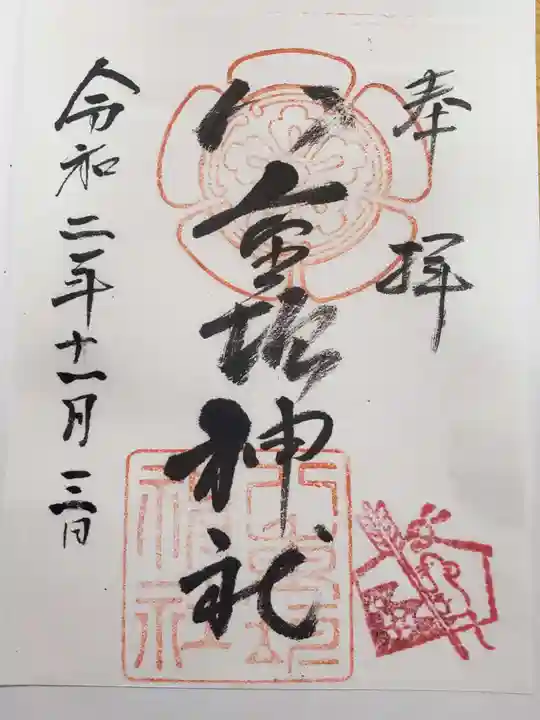 奉拝
八重垣神社
令和二年十一月三日